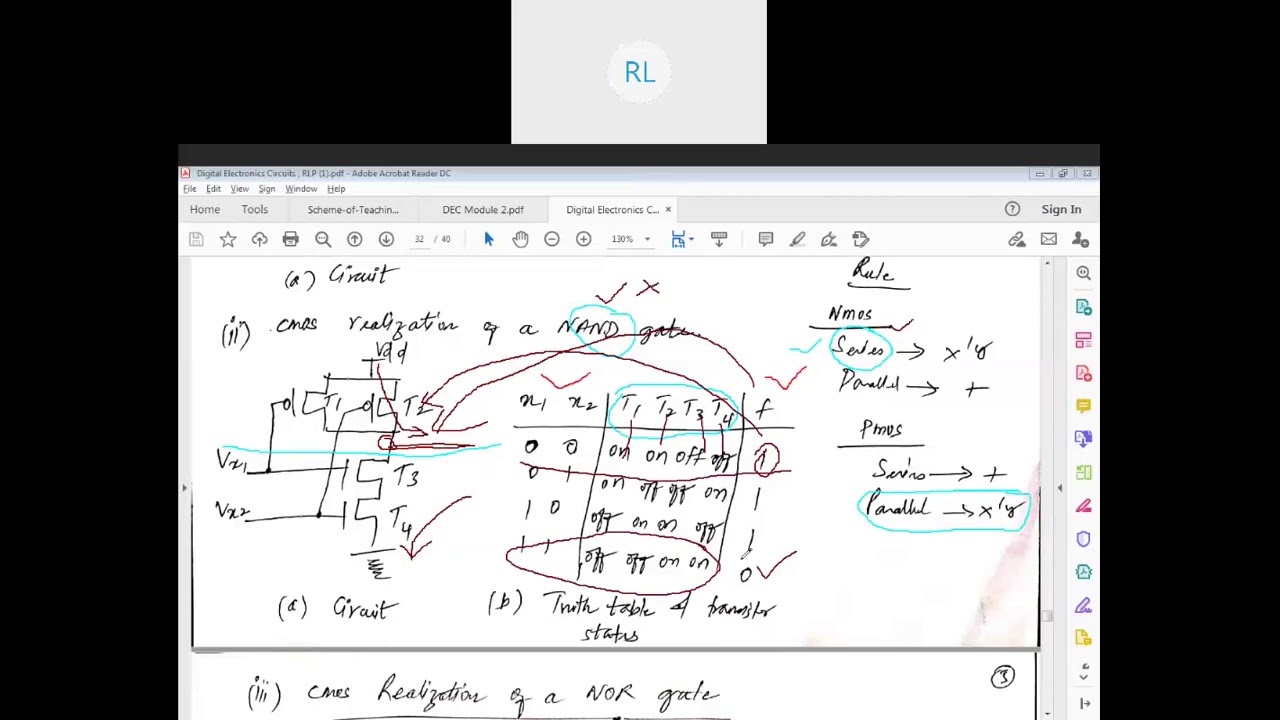 RL
Digital Electronics Circuits , RLP (1).pdf - Adobe Acrobat Reader DC
File Edit View Sign Window Help
Home Tools Scheme-of-Teachin... DEC Module 2.pdf Digital Electronics C... × Sign In
32 / 40 130%
(a) Circuit
Rule
(ii) CMOS realization of a NAND gate
Nmos
Series → x'y
Parallel → +
Pmos
Series → +
Parallel → x'y
Vdd
T1 T2
Vx1 T3
Vx2 T4
x1 x2 T1 T2 T3 T4 f
0 0 on on off off 1
0 1 on off off on 1
1 0 off on on off 1
1 1 off off on on 0
(a) Circuit
(b) Truth table & transistor
status
3
(iii) CMOS Realization of a NOR gate